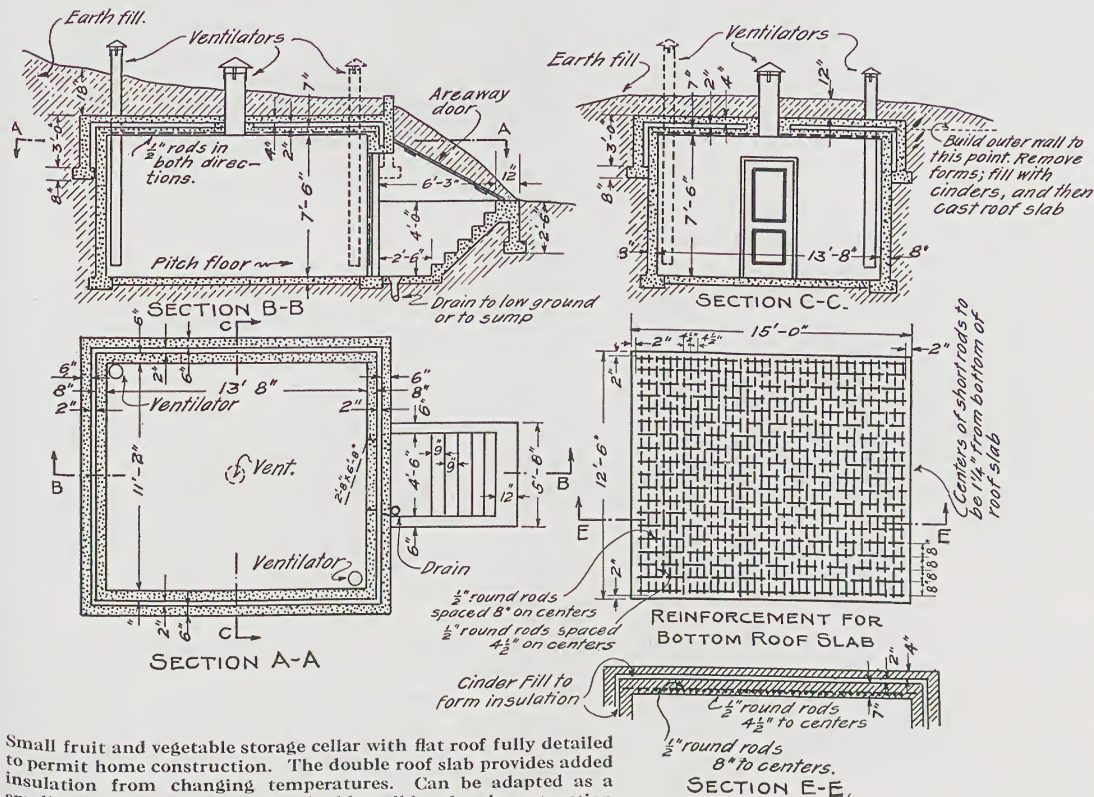 Earth fill.
Ventilators
Areaway
door
A
A
18"
7"
3'-0"
8"
1/2" rods in
both direc-
tions.
4"
2"
7'-6"
6'-3"
12"
4'-0"
2'-6"
2'-6"
Pitch floor
Drain to low ground
or to sump
SECTION B-B
Ventilators
Earth fill
7"
2"
4"
12"
3'-0"
8"
7'-6"
8"
13'-8"
8"
Build outer wall to
this point. Remove
forms; fill with
cinders, and then
cast roof slab
SECTION C-C.
6"
C
2"
6"
6"
8"
2"
13' 8"
6"
8"
2"
6"
Ventilator
11'-2"
Vent.
2'-8"x6'-8"
B
B
9"
9"
4'-6"
5'-8"
12"
6"
Ventilator
Drain
"
2"
6"
C
SECTION A-A
15'-0"
2"
4 1/2"
4 1/2"
2"
2"
12'-6"
2"
Centers of short rods to
be 1 1/4" from bottom of
roof slab
E
E
8" 8" 8" 8"
1/2" round rods
spaced 8" on centers
1/2" round rods spaced
4 1/2" on centers
REINFORCEMENT FOR
BOTTOM ROOF SLAB
Cinder Fill to
form insulation
2"
4"
7"
1/2" round rods
4 1/2" to centers
1/2" round rods
8" to centers.
SECTION E-E.
Small fruit and vegetable storage cellar with flat roof fully detailed
to permit home construction. The double roof slab provides added
insulation from changing temperatures. Can be adapted as a